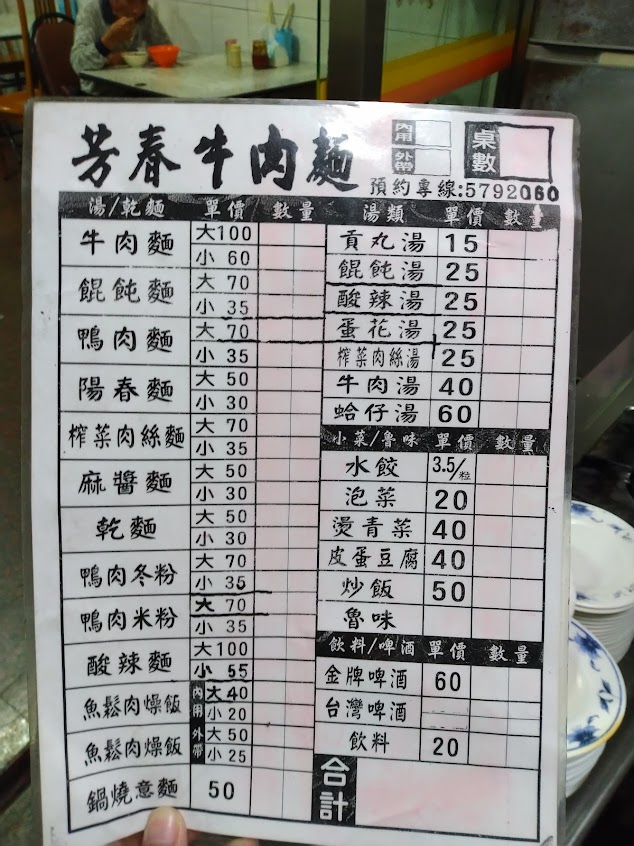 芳春牛肉麵
內用
外帶
桌數
預約專線:5792060
湯/乾麵 單價 數量
牛肉麵 大100
小 60
餛飩麵 大 70
小 35
鴨肉麵 大 70
小 35
陽春麵 大 50
小 30
榨菜肉絲麵 大 70
小 35
麻醬麵 大 50
小 30
乾麵 大 50
小 30
鴨肉冬粉 大 70
小 35
鴨肉米粉 大 70
小 35
酸辣麵 大100
小 55
魚鬆肉燥飯 內用 大40
小20
魚鬆肉燥飯 外帶 大50
小25
鍋燒意麵 50
湯類 單價 數量
貢丸湯 15
餛飩湯 25
酸辣湯 25
蛋花湯 25
榨菜肉絲湯 25
牛肉湯 40
蛤仔湯 60
小菜/魯味 單價 數量
水餃 3.5/粒
泡菜 20
燙青菜 40
皮蛋豆腐 40
炒飯 50
魯味
飲料/啤酒 單價 數量
金牌啤酒 60
台灣啤酒
飲料 20
合計